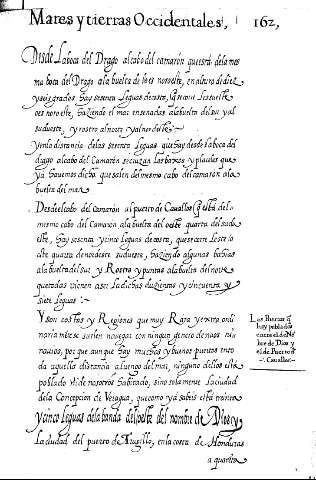 Mares y tierras Occidentales, 162,
Desde La boca del Drago al cabo del camarón questá dela mes
ma boca del Drago ala buelta de loes noroeste, en altura de diez
y seis grados hay sesenta Leguas de costa, q̃ se corre Lessueste
oes noroeste, haziendo el mar ensenadas ala buelta del su y al
sudueste, y rostro al norte y al nordeste
y enla distancia delas sesenta Leguas que hay desde la boca del
drago al cabo del Camarón se cruzan Los baxos y placeles que
ya havemos dicho que salen del mesmo cabo del camarón ala
buelta del mar
Desde el cabo del camarón al puerto de Cavallos q̃ está del
mesmo cabo del Camarón ala buelta del oeste quarta del sudu
este, hay setenta y cinco Leguas de costa, que se corre Leste o
este quarta de nordeste sudueste, haziendo algunas bahias
ala buelta del sur y Rostro y puntas ala buelta del norte
quedadas vienen a ser Las dichas duzientas y cincuenta y
siete Leguas
y son costas y Regiones que muy Rara y extra ordi
naria mente se suelen navegar con ningun genero de naos ni
navios, por que aunque hay muchos y buenos puertos ento
da aquella distancia al uengo del mar, ninguno dellos está
poblado ni de nosotros habitado, sino sola mente La ciudad
dela Concepcion de Veragua, que como ya sabeis está treinta
y cinco Leguas dela banda del loeste del nombre de Dios, y
La ciudad del puerto de Trugillo, en la costa de Honduras
a quarenta
Los Puertos q̃
hay poblados
entre el de No
bre de Dios y
el de Puerto d̃
Cavallos